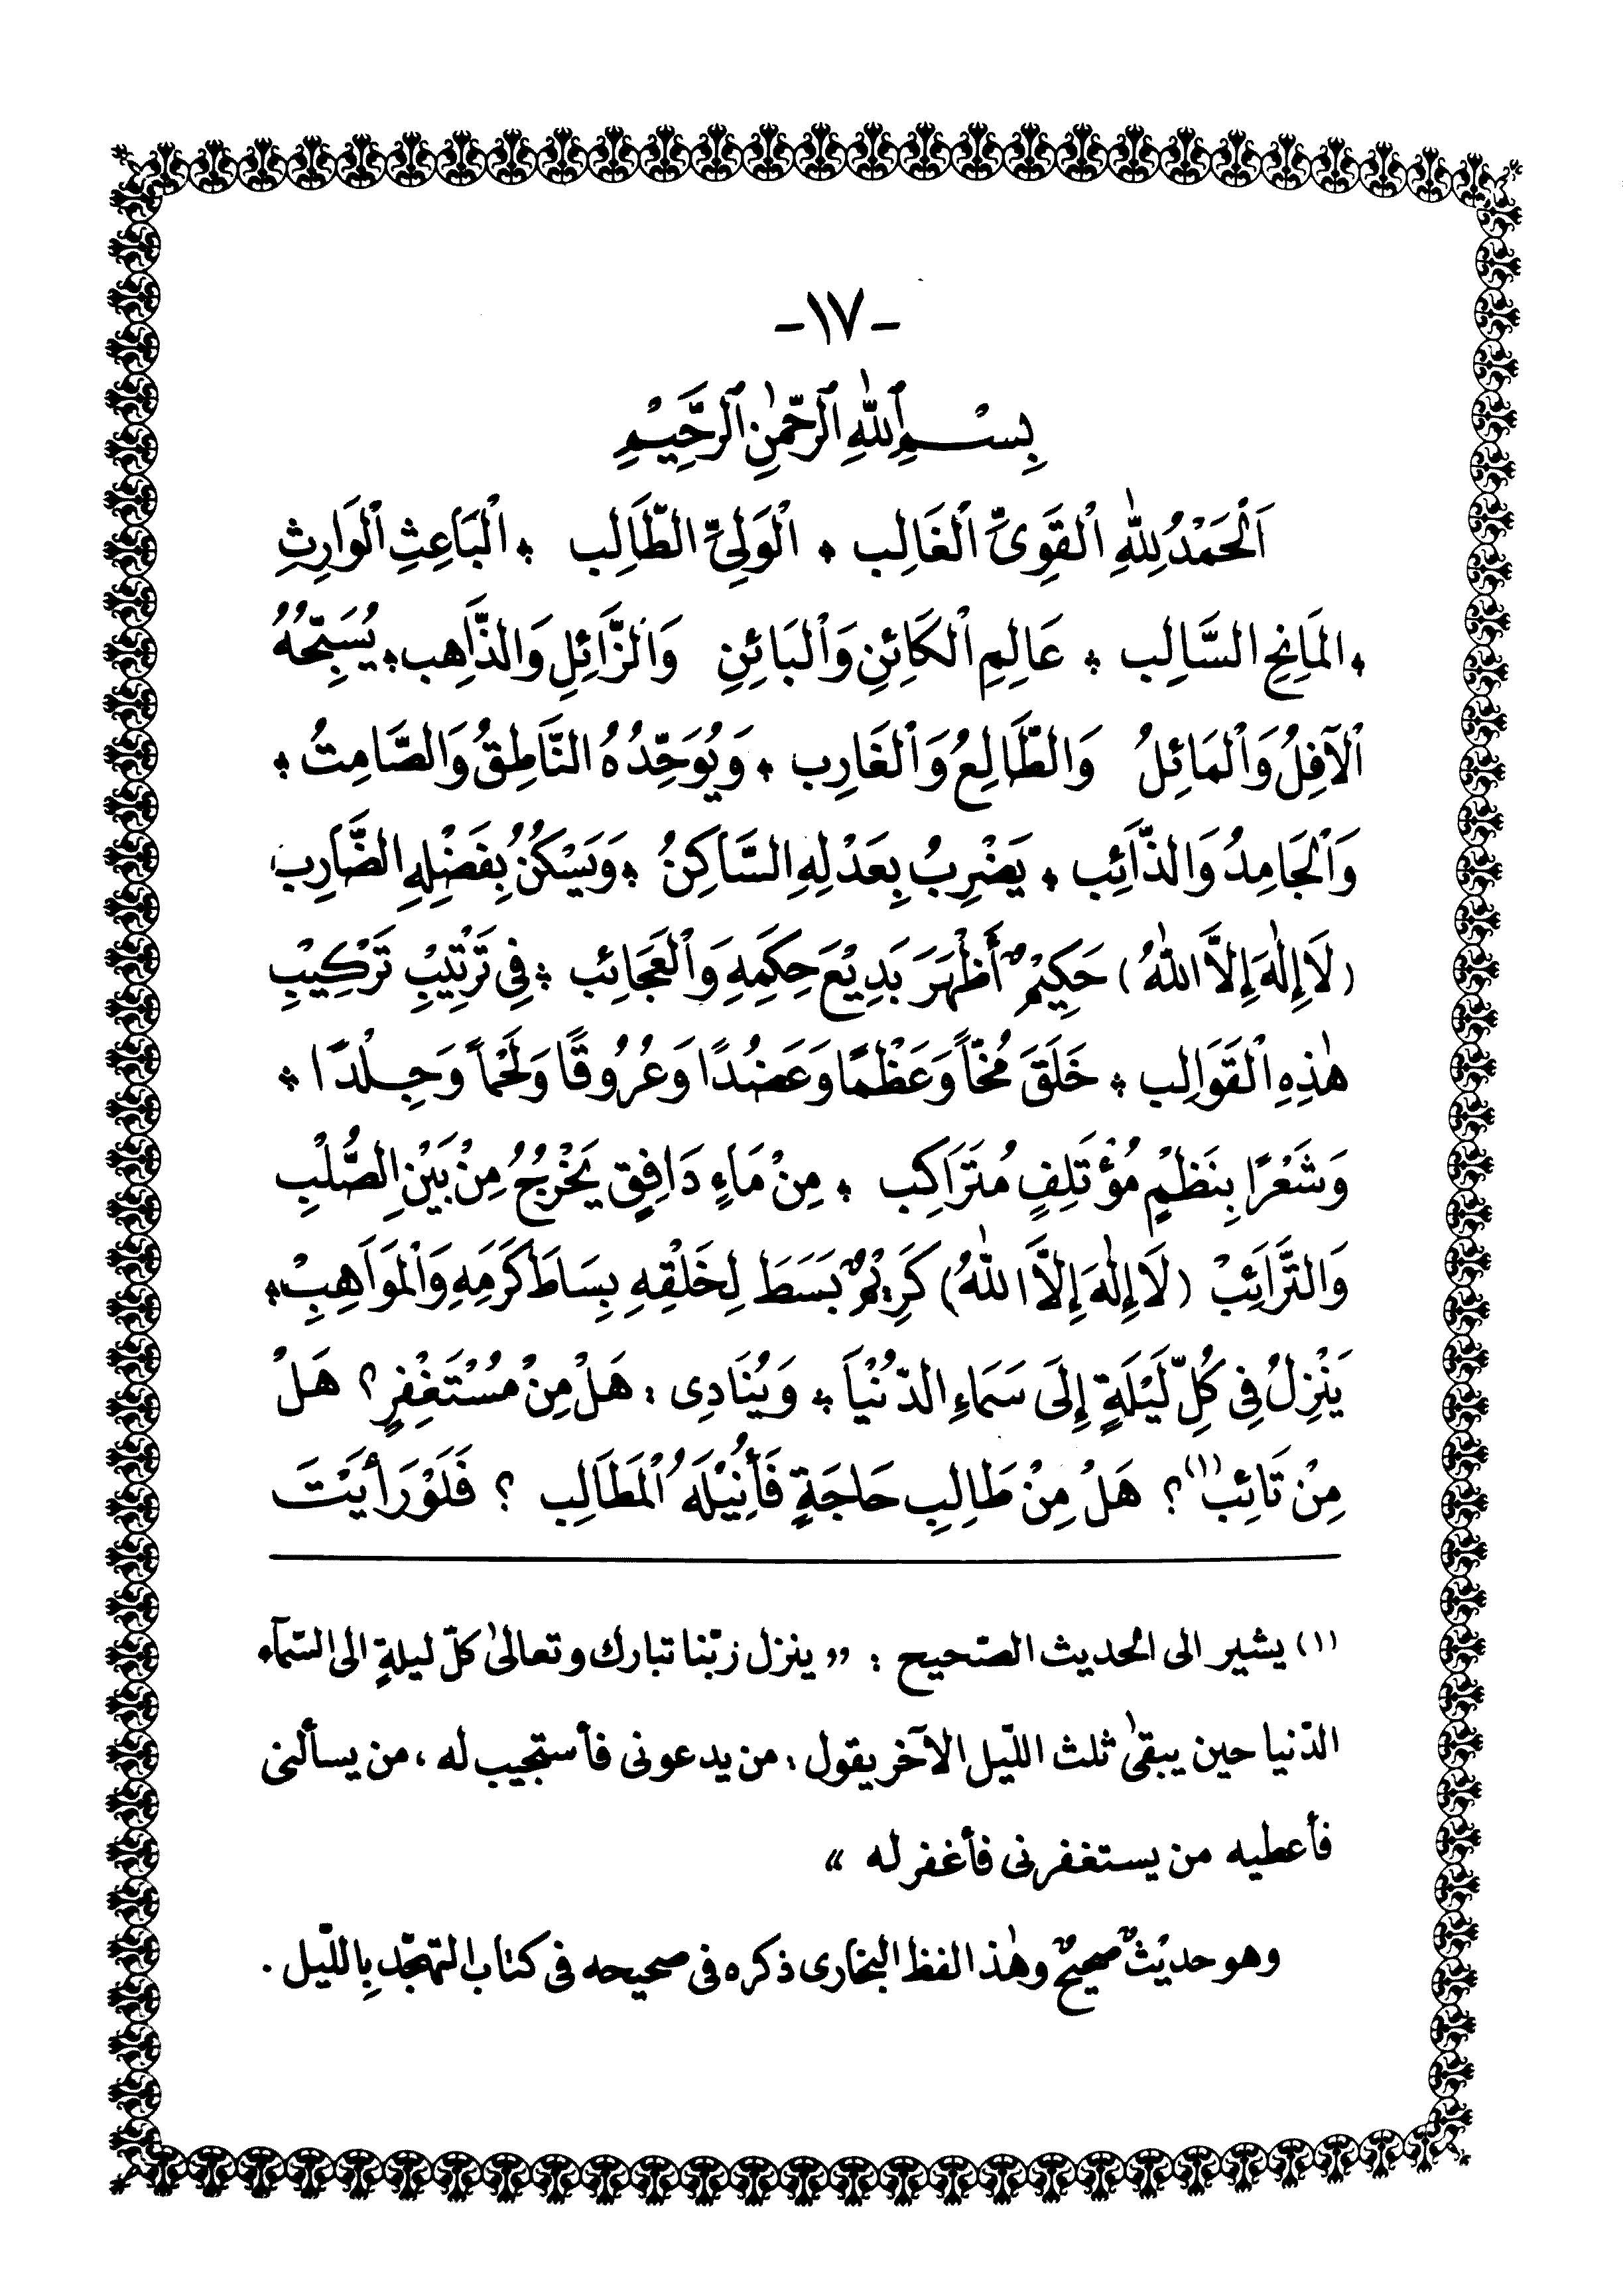 -١٧-
بِسْمِ ٱللّٰهِ ٱلرَّحْمٰنِ ٱلرَّحِيْمِ
اَلْحَمْدُ لِلّٰهِ ٱلْقَوِىِّ ٱلْغَالِب * ٱلْوَلِىِّ الطَّالِب * ٱلْبَاعِثِ ٱلْوَارِثِ
* ٱلمَانِحِ السَّالِب * عَالِمِ ٱلْكَائِنِ وَٱلْبَائِنِ وَالزَّائِلِ وَالذَّاهِب * يُسَبِّحُهُ
ٱلْآفِلُ وَٱلْمَائِلُ وَالطَّالِعُ وَٱلْغَارِب * وَيُوَحِّدُهُ النَّاطِقُ وَالصَّامِتُ *
وَٱلْجَامِدُ وَالذَّائِب * يَضْرِبُ بِعَدْلِهِ السَّاكِنُ * وَيَسْكُنُ بِفَضْلِهِ الضَّارِب
(لَا إِلٰهَ إِلاَّ اللّٰهُ) حَكِيْمٌ أَظْهَرَ بَدِيْعَ حِكَمِهِ وَٱلْعَجَائِب * فِى تَرْتِيْبِ تَرْكِيْبِ
هٰذِهِ ٱلْقَوَالِب * خَلَقَ مُخّاً وَعَظْمًا وَعَضُدًا وَعُرُوقًا وَلَحْماً وَجِلْدًا *
وَشَعْرًا بِنَظْمٍ مُؤْتَلِفٍ مُتَرَاكِب * مِنْ مَاءٍ دَافِقٍ يَخْرُجُ مِنْ بَيْنِ الصُّلْبِ
وَالتَّرَائِبْ (لَا إِلٰهَ إِلاَّ اللّٰهُ) كَرِيْمٌ بَسَطَ لِخَلْقِهِ بِسَاطَ كَرَمِهِ وَٱلْمَوَاهِبْ *
يَنْزِلُ فِى كُلِّ لَيْلَةٍ إِلَى سَمَاءِ الدُّنْيَا * وَيُنَادِى : هَلْ مِنْ مُسْتَغْفِرٍ ؟ هَلْ
مِنْ تَائِبْ (١) ؟ هَلْ مِنْ طَالِبِ حَاجَةٍ فَأُنِيْلَهُ ٱلْمَطَالِب ؟ فَلَوْ رَأَيْتَ
(١) يشير الى الحديث الصّحيح : « ينزل ربّنا تبارك وتعالىٰ كلّ ليلةٍ الى السّمآء
الدّنيا حين يبقىٰ ثلث اللّيل الآخر يقول : من يدعونى فأستجيب له ، من يسألنى
فأعطيه من يستغفرنى فأغفر له »
وهو حديْثٌ صحيحٌ وهٰذا لفظ البخارى ذكره فى صحيحه فى كتاب التهجّد بِاللّيل .